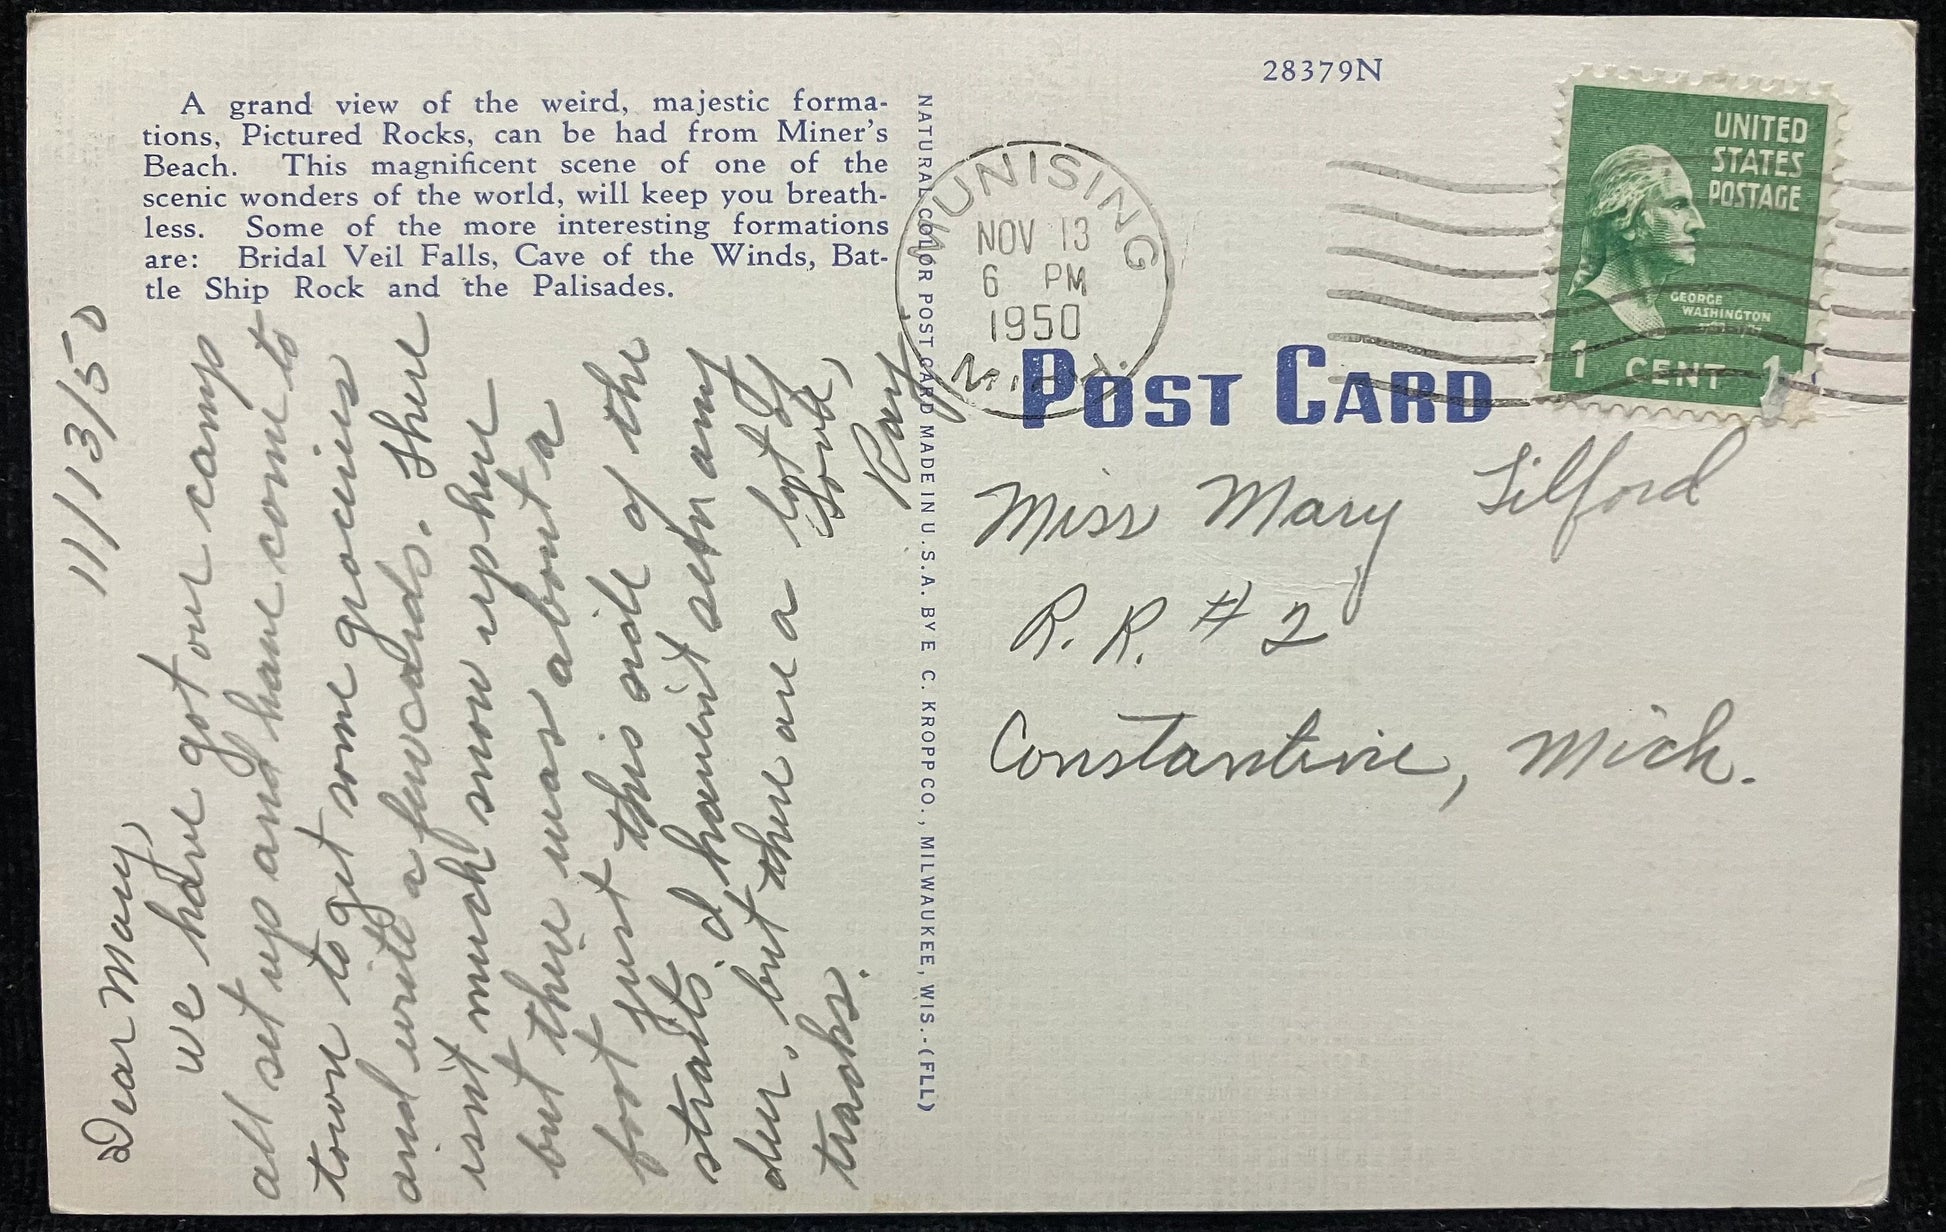 28379N
A grand view of the weird, majestic forma-
tions, Pictured Rocks, can be had from Miner's
Beach. This magnificent scene of one of the
scenic wonders of the world, will keep you breath-
less. Some of the more interesting formations
are: Bridal Veil Falls, Cave of the Winds, Bat-
tle Ship Rock and the Palisades.
11/13/50
Dear Mary,
we have got our camp
all set up and have come to
town to get some groceries
and write a few cards. There
isn't much snow up here
but there was about a
foot just this side of the
straits. I haven't seen any
deer, but there are a lot of
tracks.
Love,
Ray
NATURAL COLOR POST CARD MADE IN U.S.A. BY E. C. KROPP CO., MILWAUKEE, WIS.-(FLL)
MUNISING
NOV 13
6 PM
1950
MICH.
UNITED
STATES
POSTAGE
GEORGE
WASHINGTON
1 CENT 1
POST CARD
Miss Mary Tilford
R. R. # 2
Constantine, Mich.